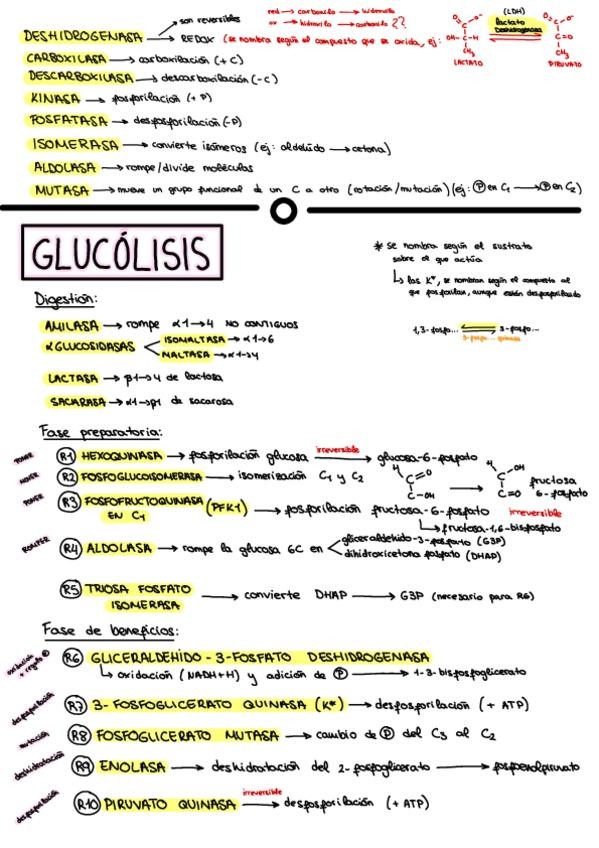 DESHIDROGENASA → son reversibles
→ REDOX (se nombra según el compuesto que se oxida, ej:
red → carboxilo → hidroxilo
ox → hidroxilo → carboxilo ??
(LDH)
lactato
Deshidrogenasa
LACTATO
PIRUVATO
CARBOXILASA → carboxilación (+ C)
DESCARBOXILASA → descarboxilación (-C)
KINASA → fosforilación (+ P)
FOSFATASA → desfosforilación (-P)
ISOMERASA → convierte isómeros (ej: aldehído → cetona)
ALDOLASA → rompe/divide moléculas
MUTASA → mueve un grupo funcional de un C a otro (rotación/mutación) (ej: Ⓟ en C₁ → Ⓟ en C₂)
GLUCÓLISIS
* se nombra según el sustrato
sobre el que actúa
↳ las K*, se nombran según el compuesto al
que fosforilan, aunque estén desfosforilando
1,3-fosfo... ⇌ 3-fosfo...
3-fosfo... quinasa
Digestión:
AMILASA → rompe α1→4 NO CONTIGUOS
αGLUCOSIDASAS
ISOMALTASA → α1→6
MALTASA → α1→4
LACTASA → β1→4 de lactosa
SACARASA → α1→β1 de sacarosa
Fase preparatoria:
PONER
R1 HEXOQUINASA → fosforilación glucosa irreversible → glucosa-6-fosfato
MOVER
R2 FOSFOGLUCOISOMERASA → isomerización C₁ y C₂
fructosa
6-fosfato
PONER
R3 FOSFOFRUCTOQUINASA (PFK1) → fosforilación fructosa-6-fosfato irreversible
EN C₁
↳ fructosa-1,6-bisfosfato
ROMPER
R4 ALDOLASA → rompe la glucosa 6C en
gliceraldehído-3-fosfato (G3P)
dihidroxicetona fosfato (DHAP)
R5 TRIOSA FOSFATO
ISOMERASA → convierte DHAP → G3P (necesario para R6)
Fase de beneficios:
oxidación
+ regalo Ⓟ
R6 GLICERALDEHIDO-3-FOSFATO DESHIDROGENASA
↳ oxidación (NADH+H) y adición de Ⓟ → 1-3-bisfosfoglicerato
desfosforilación
R7 3-FOSFOGLICERATO QUINASA (K*) → desfosforilación (+ ATP)
mutación
R8 FOSFOGLICERATO MUTASA → cambio de Ⓟ del C₃ al C₂
deshidratación
R9 ENOLASA → deshidratación del 2-fosfoglicerato → fosfoenolpiruvato
desfosforilación
R10 PIRUVATO QUINASA irreversible → desfosforilación (+ ATP)